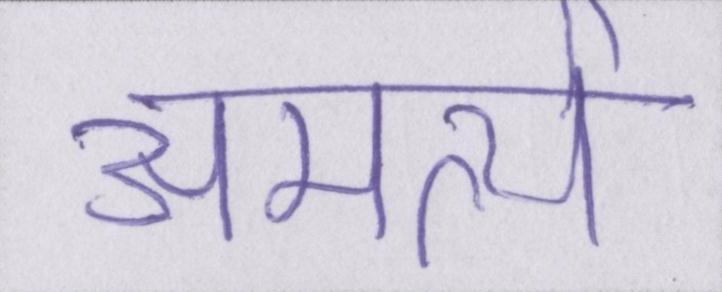 अमर्त्य